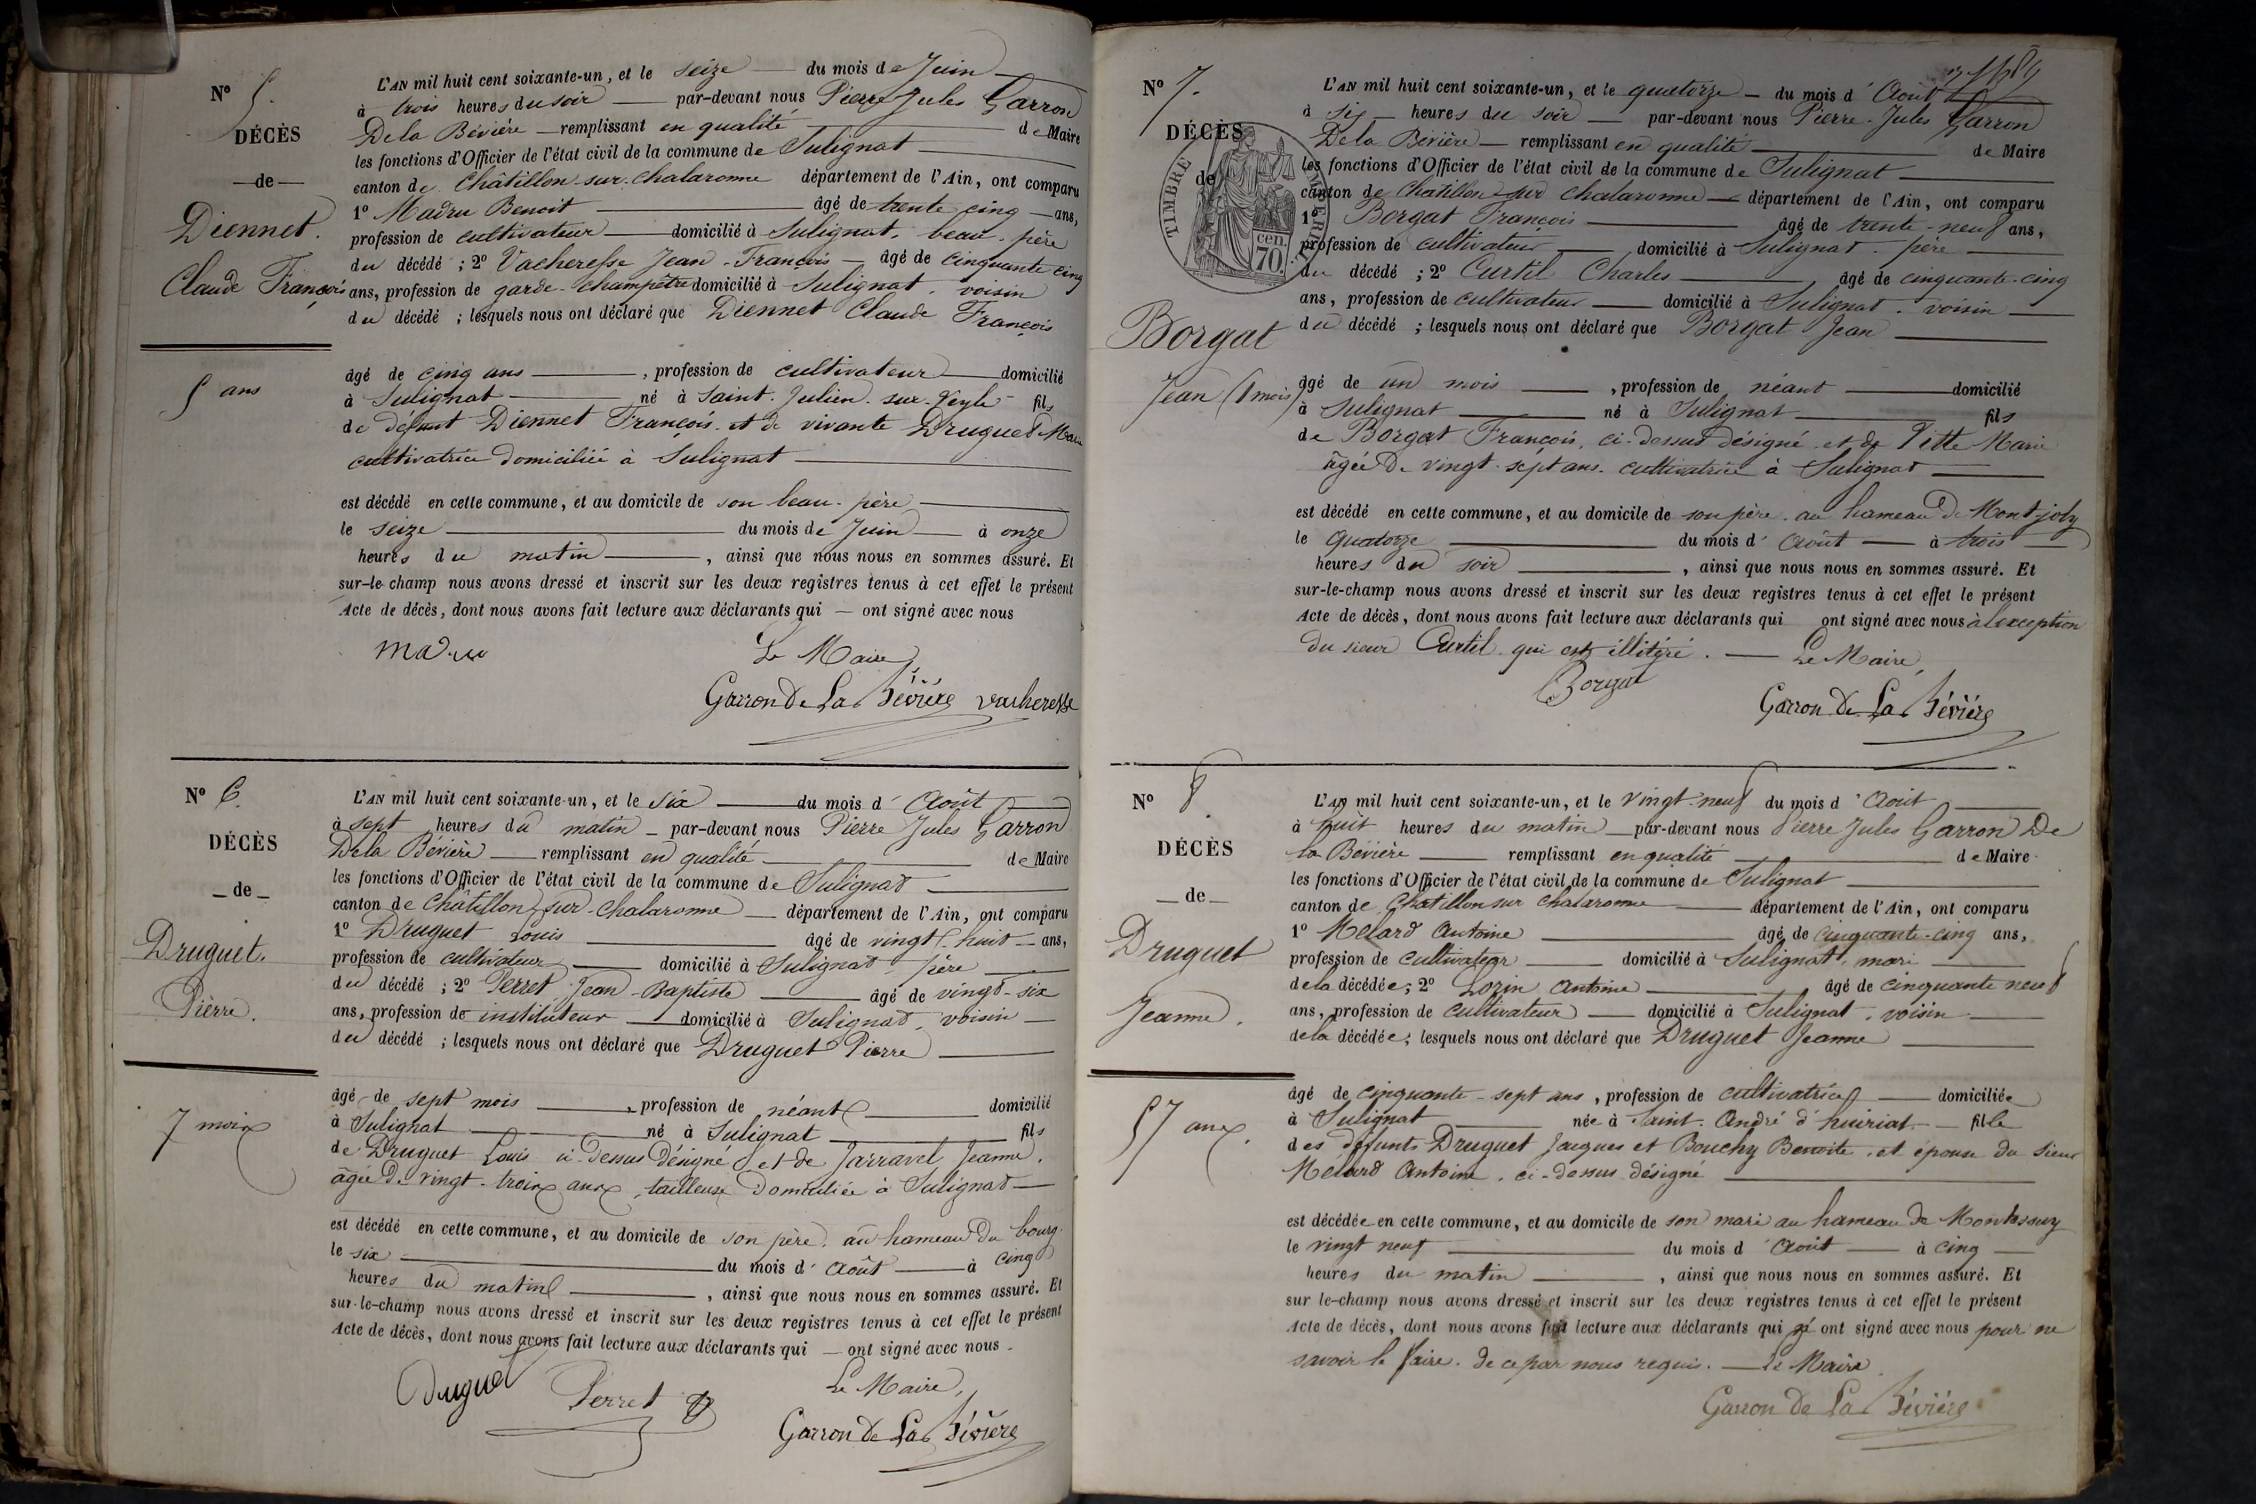 N° 5.
DÉCÈS
—de—
Diennet.
Claude François
5 ans
L'AN mil huit cent soixante-un, et le seize — du mois de Juin —
à trois heures du soir — par-devant nous Pierre Jules Garron
De la Bévière — remplissant en qualité — de Maire
les fonctions d'Officier de l'état civil de la commune de Sulignat —
canton de Châtillon-sur-Chalaronne département de l'Ain, ont comparu
1° Madru Benoit — âgé de trente cinq — ans,
profession de cultivateur — domicilié à Sulignat, beau-père
du décédé ; 2° Vacheresse Jean-François — âgé de cinquante cinq
ans, profession de garde-champêtre domicilié à Sulignat, voisin
du décédé ; lesquels nous ont déclaré que Diennet Claude François
âgé de cinq ans —, profession de cultivateur — domicilié
à Sulignat — né à Saint-Julien-sur-Veyle — fils
de défunt Diennet François et de vivante Druguet Marie
cultivatrice domiciliée à Sulignat —
est décédé en cette commune, et au domicile de son beau-père —
le seize — du mois de Juin — à onze
heures du matin —, ainsi que nous nous en sommes assuré. Et
sur-le-champ nous avons dressé et inscrit sur les deux registres tenus à cet effet le présent
Acte de décès, dont nous avons fait lecture aux déclarants qui — ont signé avec nous
Madru Le Maire,
Garron De La Bévière Vacheresse
N° 6.
DÉCÈS
—de—
Druguet.
Pierre.
7 mois
L'AN mil huit cent soixante-un, et le six — du mois d'Août —
à sept heures du matin — par-devant nous Pierre Jules Garron
De la Bévière — remplissant en qualité — de Maire
les fonctions d'Officier de l'état civil de la commune de Sulignat —
canton de Châtillon-sur-Chalaronne — département de l'Ain, ont comparu
1° Druguet Louis — âgé de vingt-huit — ans,
profession de cultivateur — domicilié à Sulignat, père —
du décédé ; 2° Perret Jean-Baptiste — âgé de vingt-six
ans, profession de instituteur — domicilié à Sulignat, voisin —
du décédé ; lesquels nous ont déclaré que Druguet Pierre —
âgé de sept mois —, profession de néant — domicilié
à Sulignat — né à Sulignat — fils
de Druguet Louis ci-dessus désigné et de Jarravel Jeanne,
âgée de vingt-trois ans, tailleuse domiciliée à Sulignat —
est décédé en cette commune, et au domicile de son père, au hameau du bourg
le six — du mois d'Août — à cinq
heures du matin —, ainsi que nous nous en sommes assuré. Et
sur-le-champ nous avons dressé et inscrit sur les deux registres tenus à cet effet le présent
Acte de décès, dont nous avons fait lecture aux déclarants qui — ont signé avec nous.
Druguet Perret Le Maire,
Garron De La Bévière
N° 7.
DÉCÈS
de
TIMBRE IMPÉRIAL
70 cen.
Borgat
Jean (1 mois)
L'AN mil huit cent soixante-un, et le quatorze — du mois d'Août
à six heures du soir — par-devant nous Pierre-Jules Garron
De la Bévière — remplissant en qualité — de Maire
les fonctions d'Officier de l'état civil de la commune de Sulignat —
canton de Chatillon sur Chalaronne — département de l'Ain, ont comparu
1° Borgat François — âgé de trente-neuf ans,
profession de cultivateur — domicilié à Sulignat, père —
du décédé ; 2° Curtil Charles — âgé de cinquante-cinq
ans, profession de cultivateur — domicilié à Sulignat, voisin —
du décédé ; lesquels nous ont déclaré que Borgat Jean —
âgé de un mois —, profession de néant — domicilié
à Sulignat — né à Sulignat — fils
de Borgat François, ci-dessus désigné et de Pitte Marie
âgée de vingt-sept ans, cultivatrice à Sulignat —
est décédé en cette commune, et au domicile de son père, au hameau de Mont-joly
le quatorze — du mois d'Août — à trois —
heures du soir —, ainsi que nous nous en sommes assuré. Et
sur-le-champ nous avons dressé et inscrit sur les deux registres tenus à cet effet le présent
Acte de décès, dont nous avons fait lecture aux déclarants qui ont signé avec nous à l'exception
du sieur Curtil qui est illitéré. — Le Maire,
Borgat
Garron De La Bévière
N° 8
DÉCÈS
—de—
Druguet
Jeanne.
57 ans.
L'AN mil huit cent soixante-un, et le vingt-neuf du mois d'Août —
à huit heures du matin — par-devant nous Pierre Jules Garron De
la Bévière — remplissant en qualité — de Maire
les fonctions d'Officier de l'état civil de la commune de Sulignat —
canton de Chatillon sur Chalaronne — département de l'Ain, ont comparu
1° Mélard Antoine — âgé de cinquante-cinq ans,
profession de cultivateur — domicilié à Sulignat, mari —
de la décédée; 2° Lozin Antoine — âgé de cinquante neuf
ans, profession de cultivateur — domicilié à Sulignat, voisin —
de la décédée; lesquels nous ont déclaré que Druguet Jeanne —
âgé de cinquante-sept ans, profession de cultivatrice — domiciliée
à Sulignat — née à Saint-André d'huiriat — fille
des défunts Druguet Jacques et Bouchy Benoite, et épouse du sieur
Mélard Antoine, ci-dessus désigné —
est décédée en cette commune, et au domicile de son mari au hameau de Montessuy
le vingt neuf — du mois d'Août — à cinq —
heures du matin —, ainsi que nous nous en sommes assuré. Et
sur le-champ nous avons dressé et inscrit sur les deux registres tenus à cet effet le présent
Acte de décès, dont nous avons fait lecture aux déclarants qui né ont signé avec nous pour ne
savoir le faire. de ce par nous requis. — Le Maire.
Garron De La Bévière